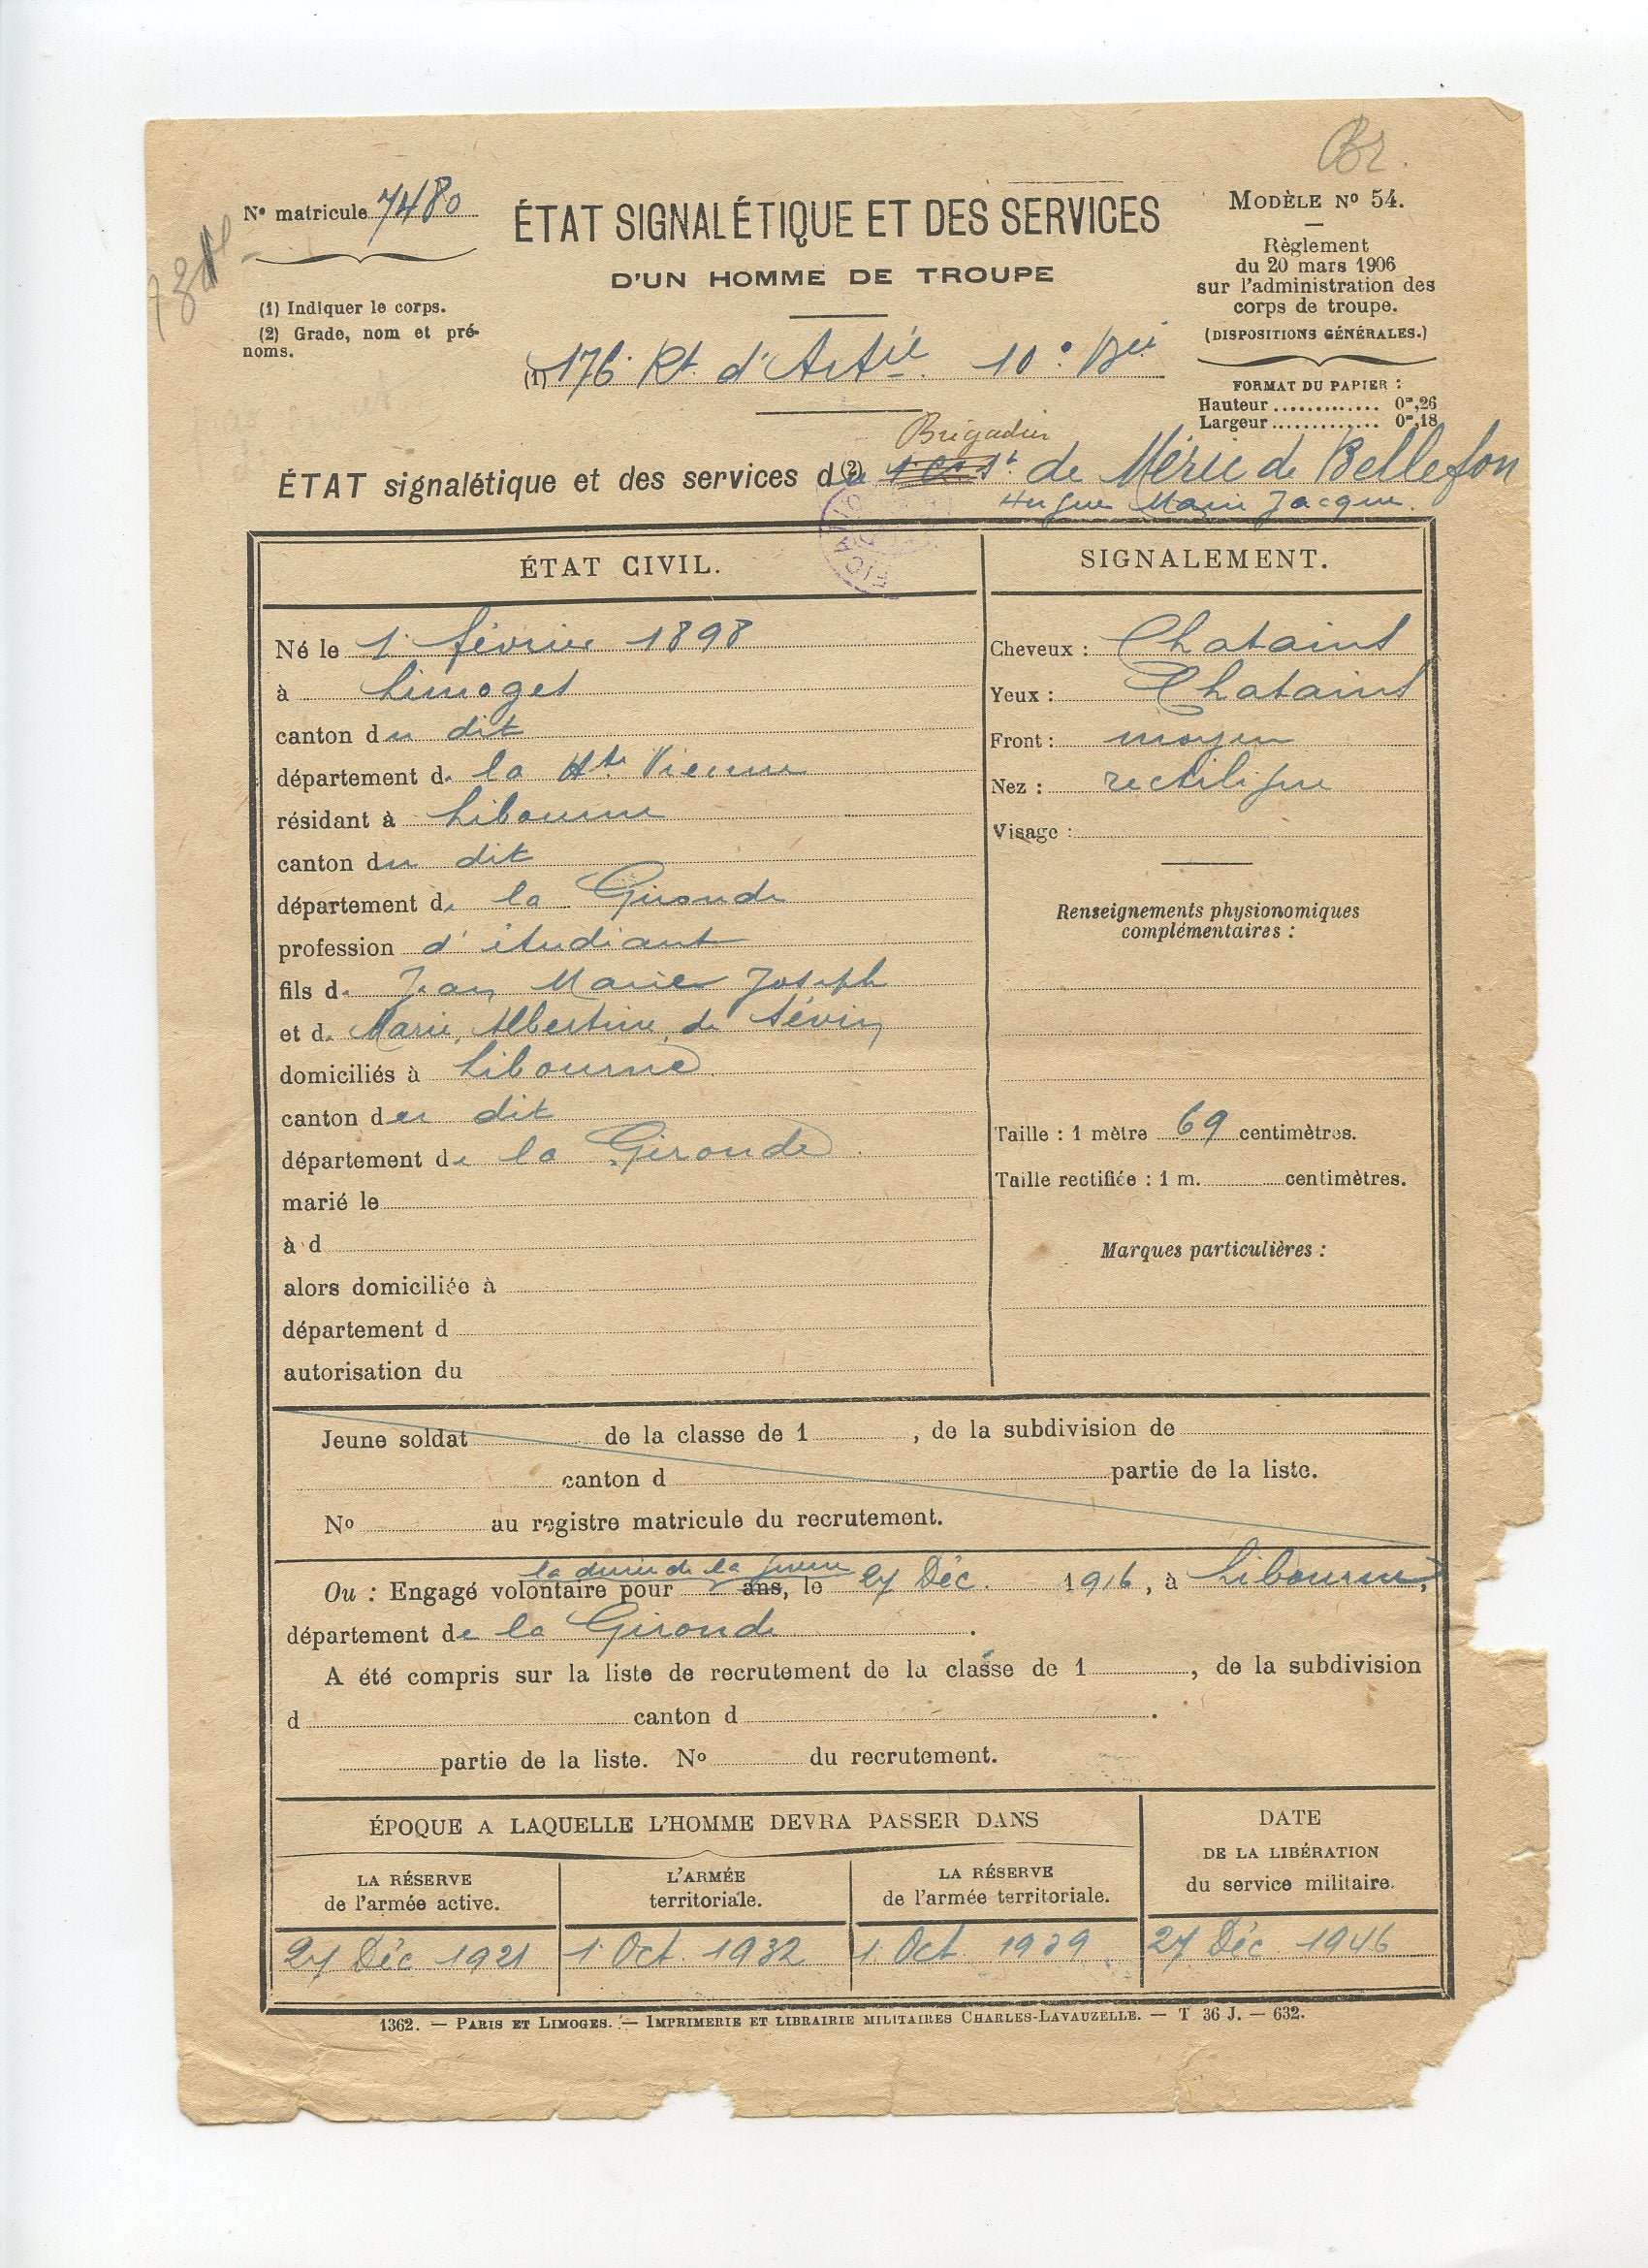 Br.
N° matricule 7480
MODÈLE N° 54.
ÉTAT SIGNALÉTIQUE ET DES SERVICES
D'UN HOMME DE TROUPE
Règlement
du 20 mars 1906
sur l'administration des
corps de troupe.
(DISPOSITIONS GÉNÉRALES.)
(1) Indiquer le corps.
(2) Grade, nom et pré-
noms.
(1) 176e Rt. d'Artie. 10e Bie
FORMAT DU PAPIER :
Hauteur ............. 0m,26
Largeur ............. 0m,18
Brigadier
ÉTAT signalétique et des services du (2) de Méric de Bellefon
Hugues Marie Jacques
ÉTAT CIVIL.
Né le 1 février 1898
à Limoges
canton du dit
département de la Hte Vienne
résidant à Libourne
canton du dit
département de la Gironde
profession d'étudiant
fils de Jean Marie Joseph
et de Marie Albertine de Sévin
domiciliés à Libourne
canton du dit
département de la Gironde
marié le
à d
alors domiciliée à
département d
autorisation du
SIGNALEMENT.
Cheveux : Chatains
Yeux : Chatains
Front : moyen
Nez : rectiligne
Visage :
Renseignements physionomiques
complémentaires :
Taille : 1 mètre 69 centimètres.
Taille rectifiée : 1 m. centimètres.
Marques particulières :
Jeune soldat de la classe de 1 , de la subdivision de
canton d partie de la liste.
N° au registre matricule du recrutement.
la durée de la guerre
Ou : Engagé volontaire pour ans, le 27 Déc. 1916, à Libourne,
département de la Gironde.
A été compris sur la liste de recrutement de la classe de 1 , de la subdivision
d canton d .
partie de la liste. N° du recrutement.
ÉPOQUE A LAQUELLE L'HOMME DEVRA PASSER DANS
DATE
DE LA LIBÉRATION
du service militaire.
LA RÉSERVE
de l'armée active.
L'ARMÉE
territoriale.
LA RÉSERVE
de l'armée territoriale.
27 Déc 1921
1 Oct. 1932
1 Oct. 1939
27 Déc 1946
1362. — PARIS ET LIMOGES. — IMPRIMERIE ET LIBRAIRIE MILITAIRES CHARLES-LAVAUZELLE. — T 36 J. — 632.